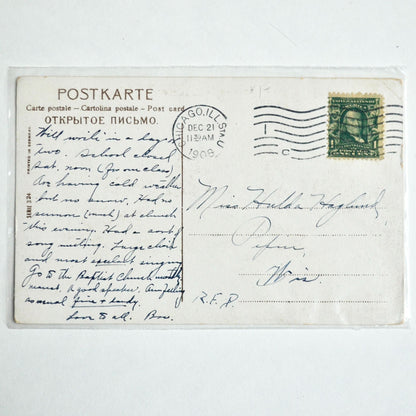 POSTKARTE
Carte postale — Cartolina postale — Post card
ОТКРЫТОЕ ПИСЬМО.
CHICAGO, ILL.
DEC 21
1130AM
1908
Will write in a day or
two. School closed
Sat. noon
having cold weather
but no snow. Had no
sermon at church
this evening. Had a sort of
song meeting. Large choir
and most excellent singing
Go to the Baptist Church mostly
A good speaker. Am feeling
as usual fine & dandy.
Love to all.
SERIE 234
Miss Hulda Haglund
Pepin,
Wis.
R.F.D.
1
C